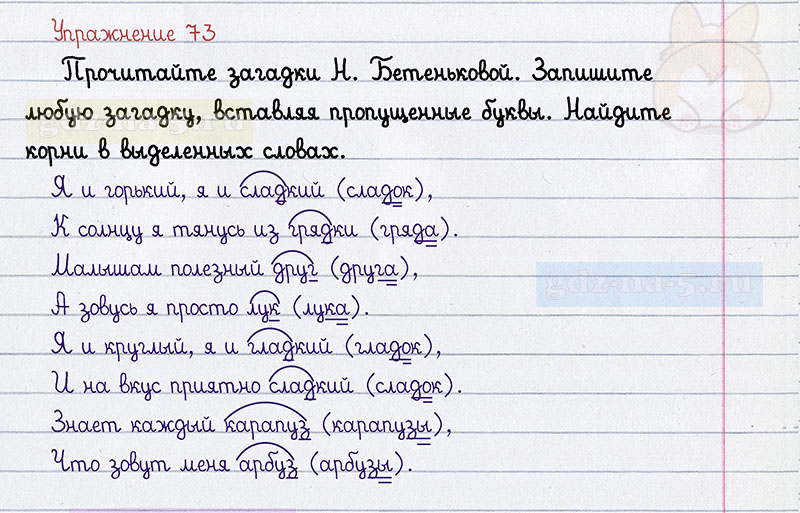 Упражнение 73
Прочитайте загадки Н. Бетеньковой. Запишите
любую загадку, вставляя пропущенные буквы. Найдите
корни в выделенных словах.
Я и горький, я и сладкий (сладок),
К солнцу я тянусь из грядки (гряда).
Малышам полезный друг (друга),
А зовусь я просто лук (лука).
Я и круглый, я и гладкий (гладок),
И на вкус приятно сладкий (сладок).
Знает каждый карапуз (карапузы),
Что зовут меня арбуз (арбузы).
gdz-na-5.ru
gdz-na-5.ru